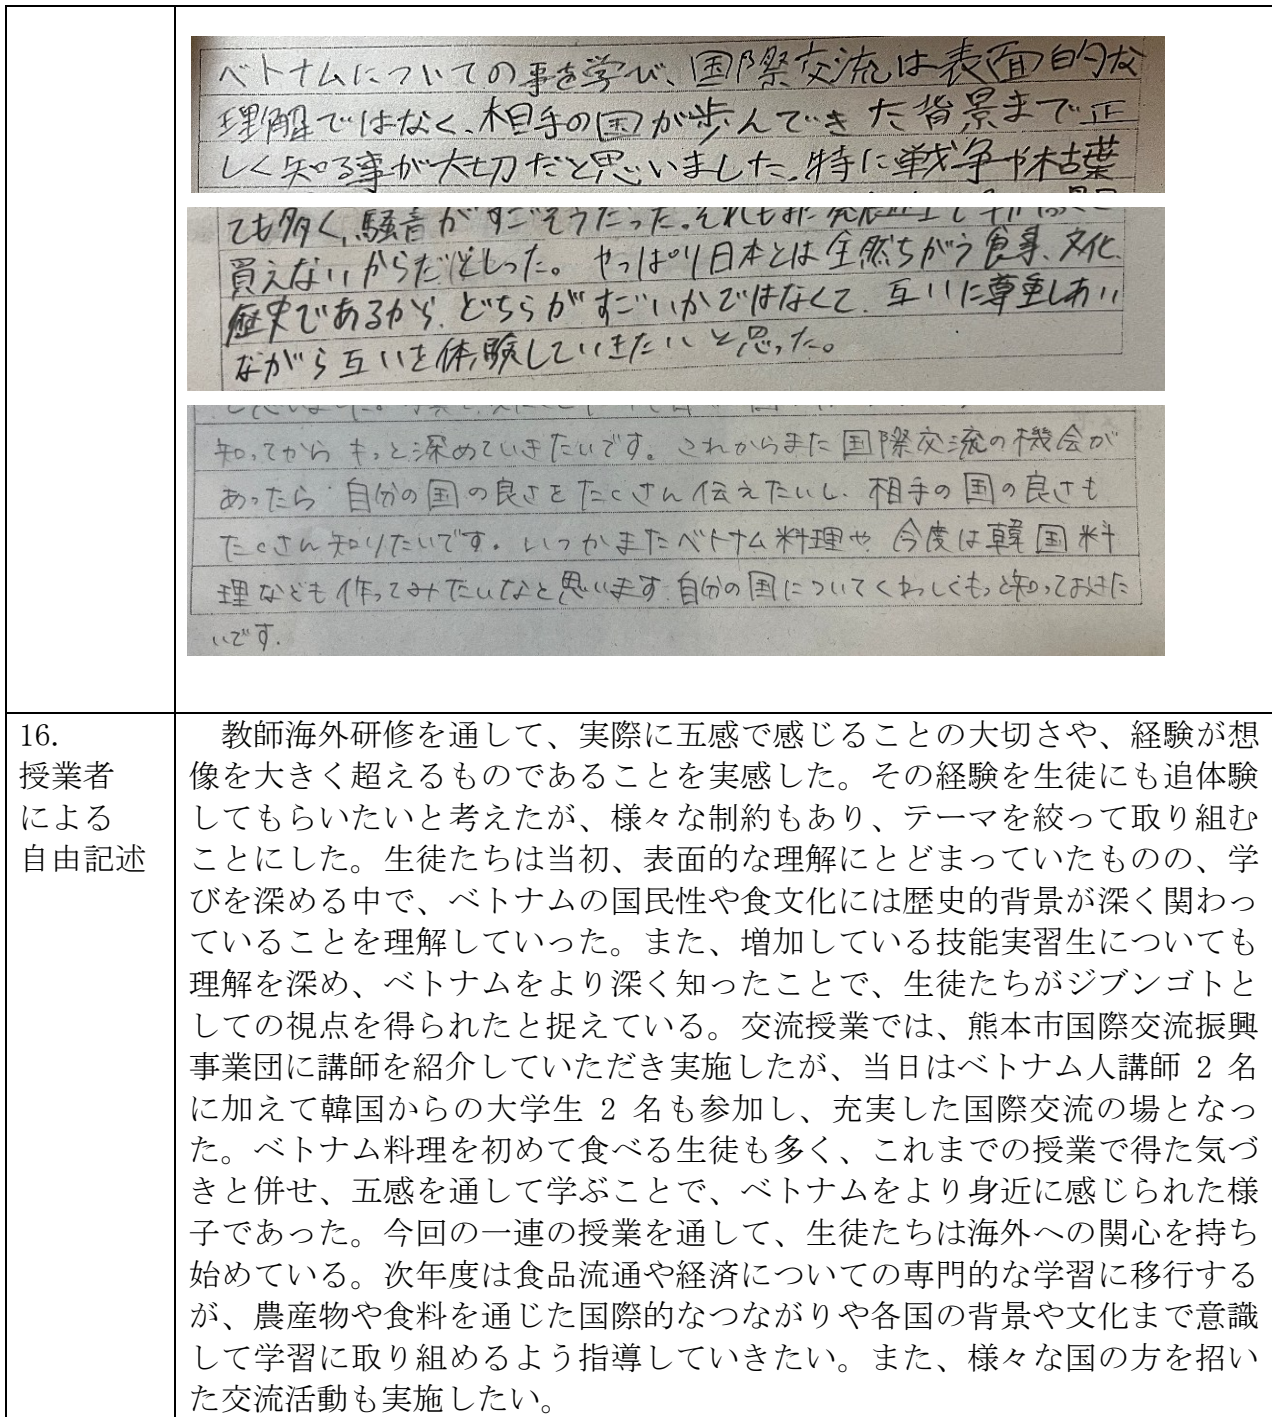 ベトナムについての事を学び、国際交流は表面的な
理解ではなく、相手の国が歩んできた背景まで正
しく知る事が大切だと思いました。特に戦争や枯葉
ても多く、騒音がすごそうだった。それもまた
買えないからだと知った。やっぱり日本とは全然ちがう食事、文化、
歴史であるから、どちらがすごいかではなくて、互いに尊重しあい
ながら互いを体験していきたいと思った。
知ってからもっと深めていきたいです。これからまた国際交流の機会が
あったら自分の国の良さをたくさん伝えたいし、相手の国の良さも
たくさん知りたいです。いつかまたベトナム料理や、今度は韓国料
理なども作ってみたいなと思います。自分の国についてくわしくもっと知っておきた
いです。
16.
授業者
による
自由記述
教師海外研修を通して、実際に五感で感じることの大切さや、経験が想
像を大きく超えるものであることを実感した。その経験を生徒にも追体験
してもらいたいと考えたが、様々な制約もあり、テーマを絞って取り組む
ことにした。生徒たちは当初、表面的な理解にとどまっていたものの、学
びを深める中で、ベトナムの国民性や食文化には歴史的背景が深く関わっ
ていることを理解していった。また、増加している技能実習生についても
理解を深め、ベトナムをより深く知ったことで、生徒たちがジブンゴトと
しての視点を得られたと捉えている。交流授業では、熊本市国際交流振興
事業団に講師を紹介していただき実施したが、当日はベトナム人講師 2 名
に加えて韓国からの大学生 2 名も参加し、充実した国際交流の場となっ
た。ベトナム料理を初めて食べる生徒も多く、これまでの授業で得た気づ
きと併せ、五感を通して学ぶことで、ベトナムをより身近に感じられた様
子であった。今回の一連の授業を通して、生徒たちは海外への関心を持ち
始めている。次年度は食品流通や経済についての専門的な学習に移行する
が、農産物や食料を通じた国際的なつながりや各国の背景や文化まで意識
して学習に取り組めるよう指導していきたい。また、様々な国の方を招い
た交流活動も実施したい。